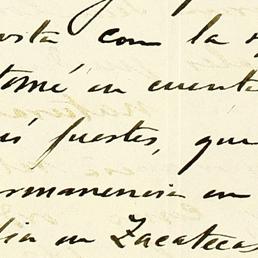 osita con la
tomé en cuenta
is fuertes, que
ermanencia en
dia en Zacatecas